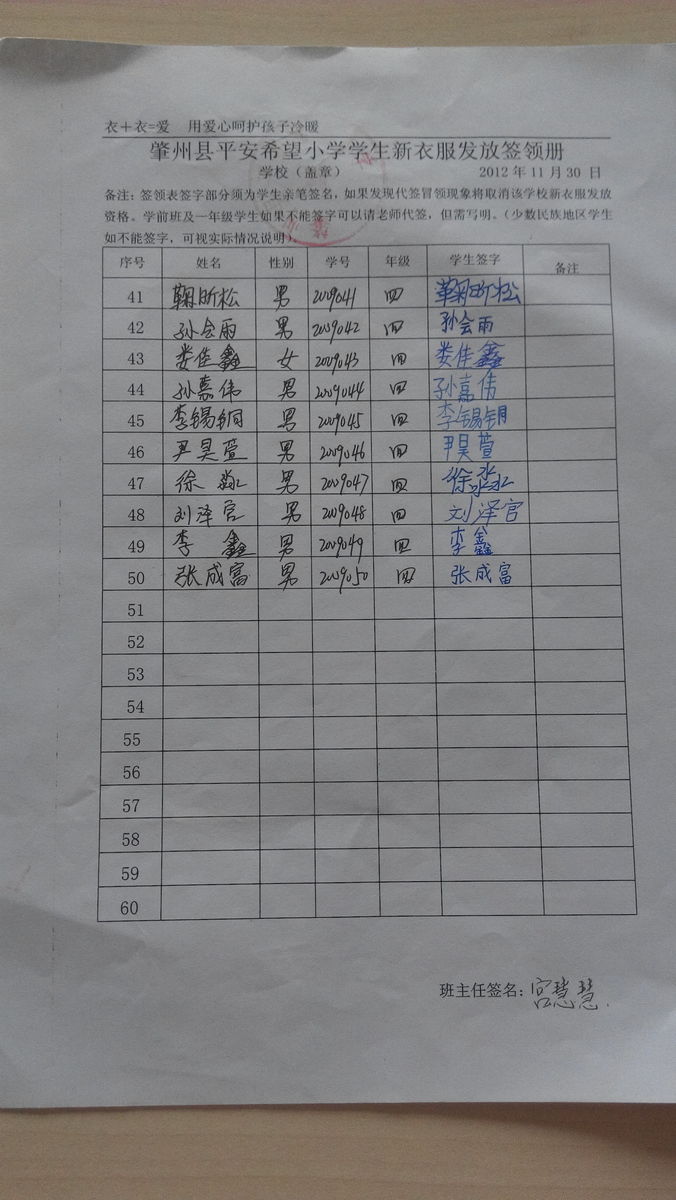 衣+衣=爱 用爱心呵护孩子冷暖
肇州县平安希望小学学生新衣服发放签领册
学校（盖章） 2012 年 11 月 30 日
备注：签领表签字部分须为学生亲笔签名，如果发现代签冒领现象将取消该学校新衣服发放
资格。学前班及一年级学生如果不能签字可以请老师代签，但需写明。（少数民族地区学生
如不能签字，可视实际情况说明）
序号 姓名 性别 学号 年级 学生签字 备注
41 鞠昕松 男 2009041 四 鞠昕松
42 孙会雨 男 2009042 四 孙会雨
43 娄佳鑫 女 2009043 四 娄佳鑫
44 孙嘉伟 男 2009044 四 孙嘉伟
45 李锡铜 男 2009045 四 李锡铜
46 尹昊萱 男 2009046 四 尹昊萱
47 徐淼 男 2009047 四 徐淼
48 刘泽宫 男 2009048 四 刘泽宫
49 李鑫 男 2009049 四 李鑫
50 张成富 男 2009050 四 张成富
51
52
53
54
55
56
57
58
59
60
班主任签名：宫慧慧